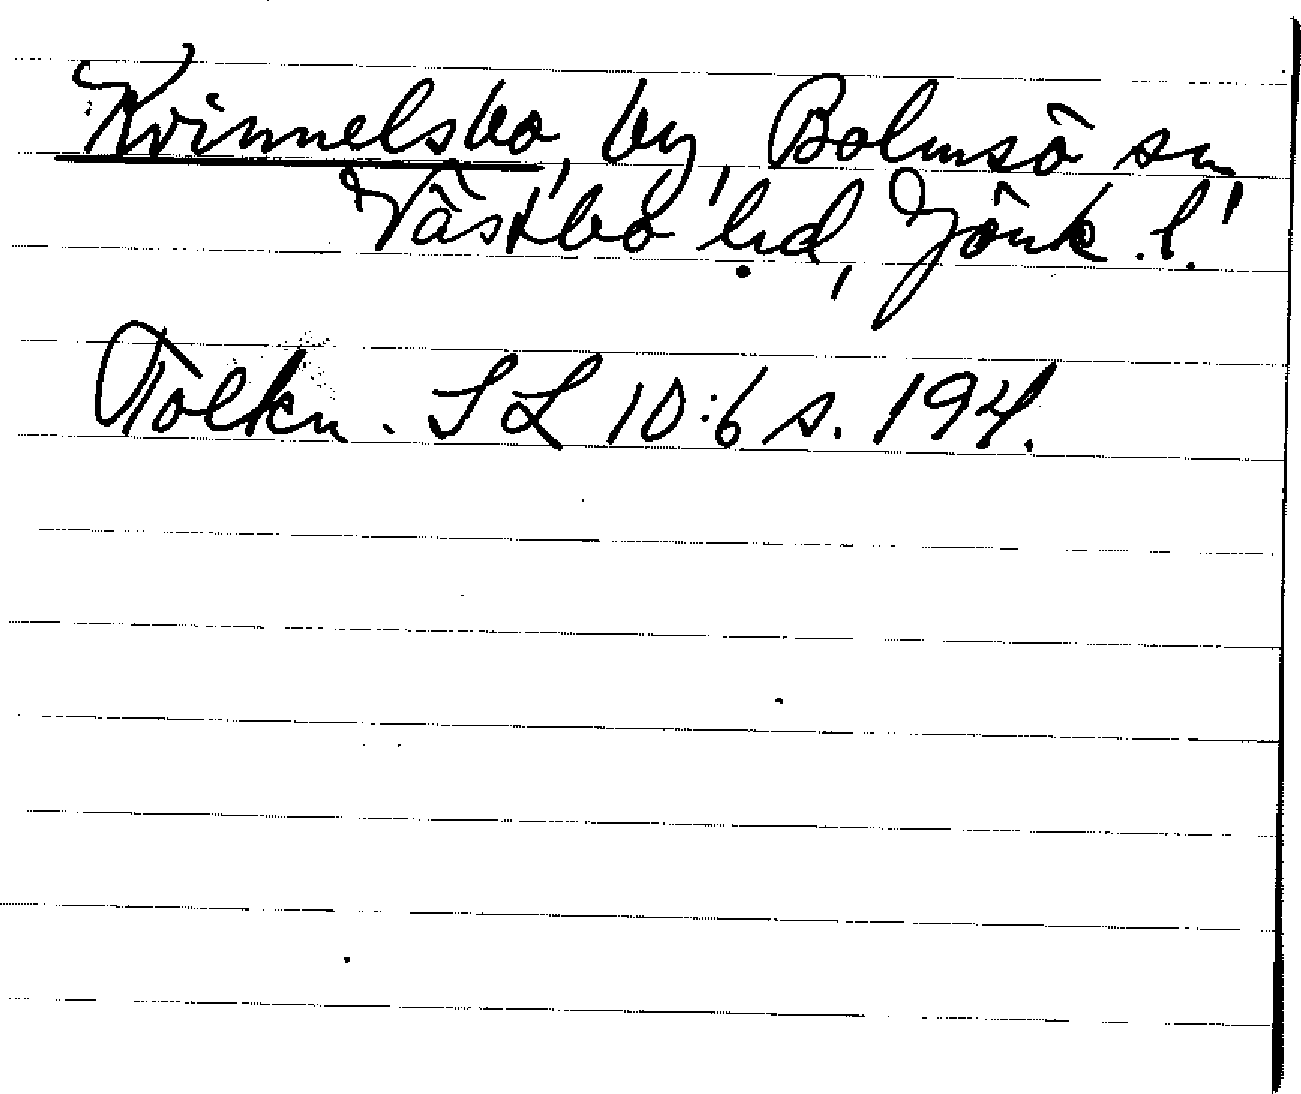 Kvinnelsbo, by, Bolmsö sn,
Västbo hd, Jönk. l.
Tolkn. SL 10:6 s. 194.